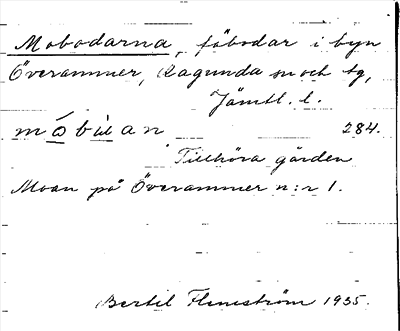 Mobodarna, fäbodar i byn
Överammer, Ragunda sn och tg,
Jämtl. l.
284.
Tillhöra gården
Moan på Överammer n:r 1.
Bertil Flemström 1935.